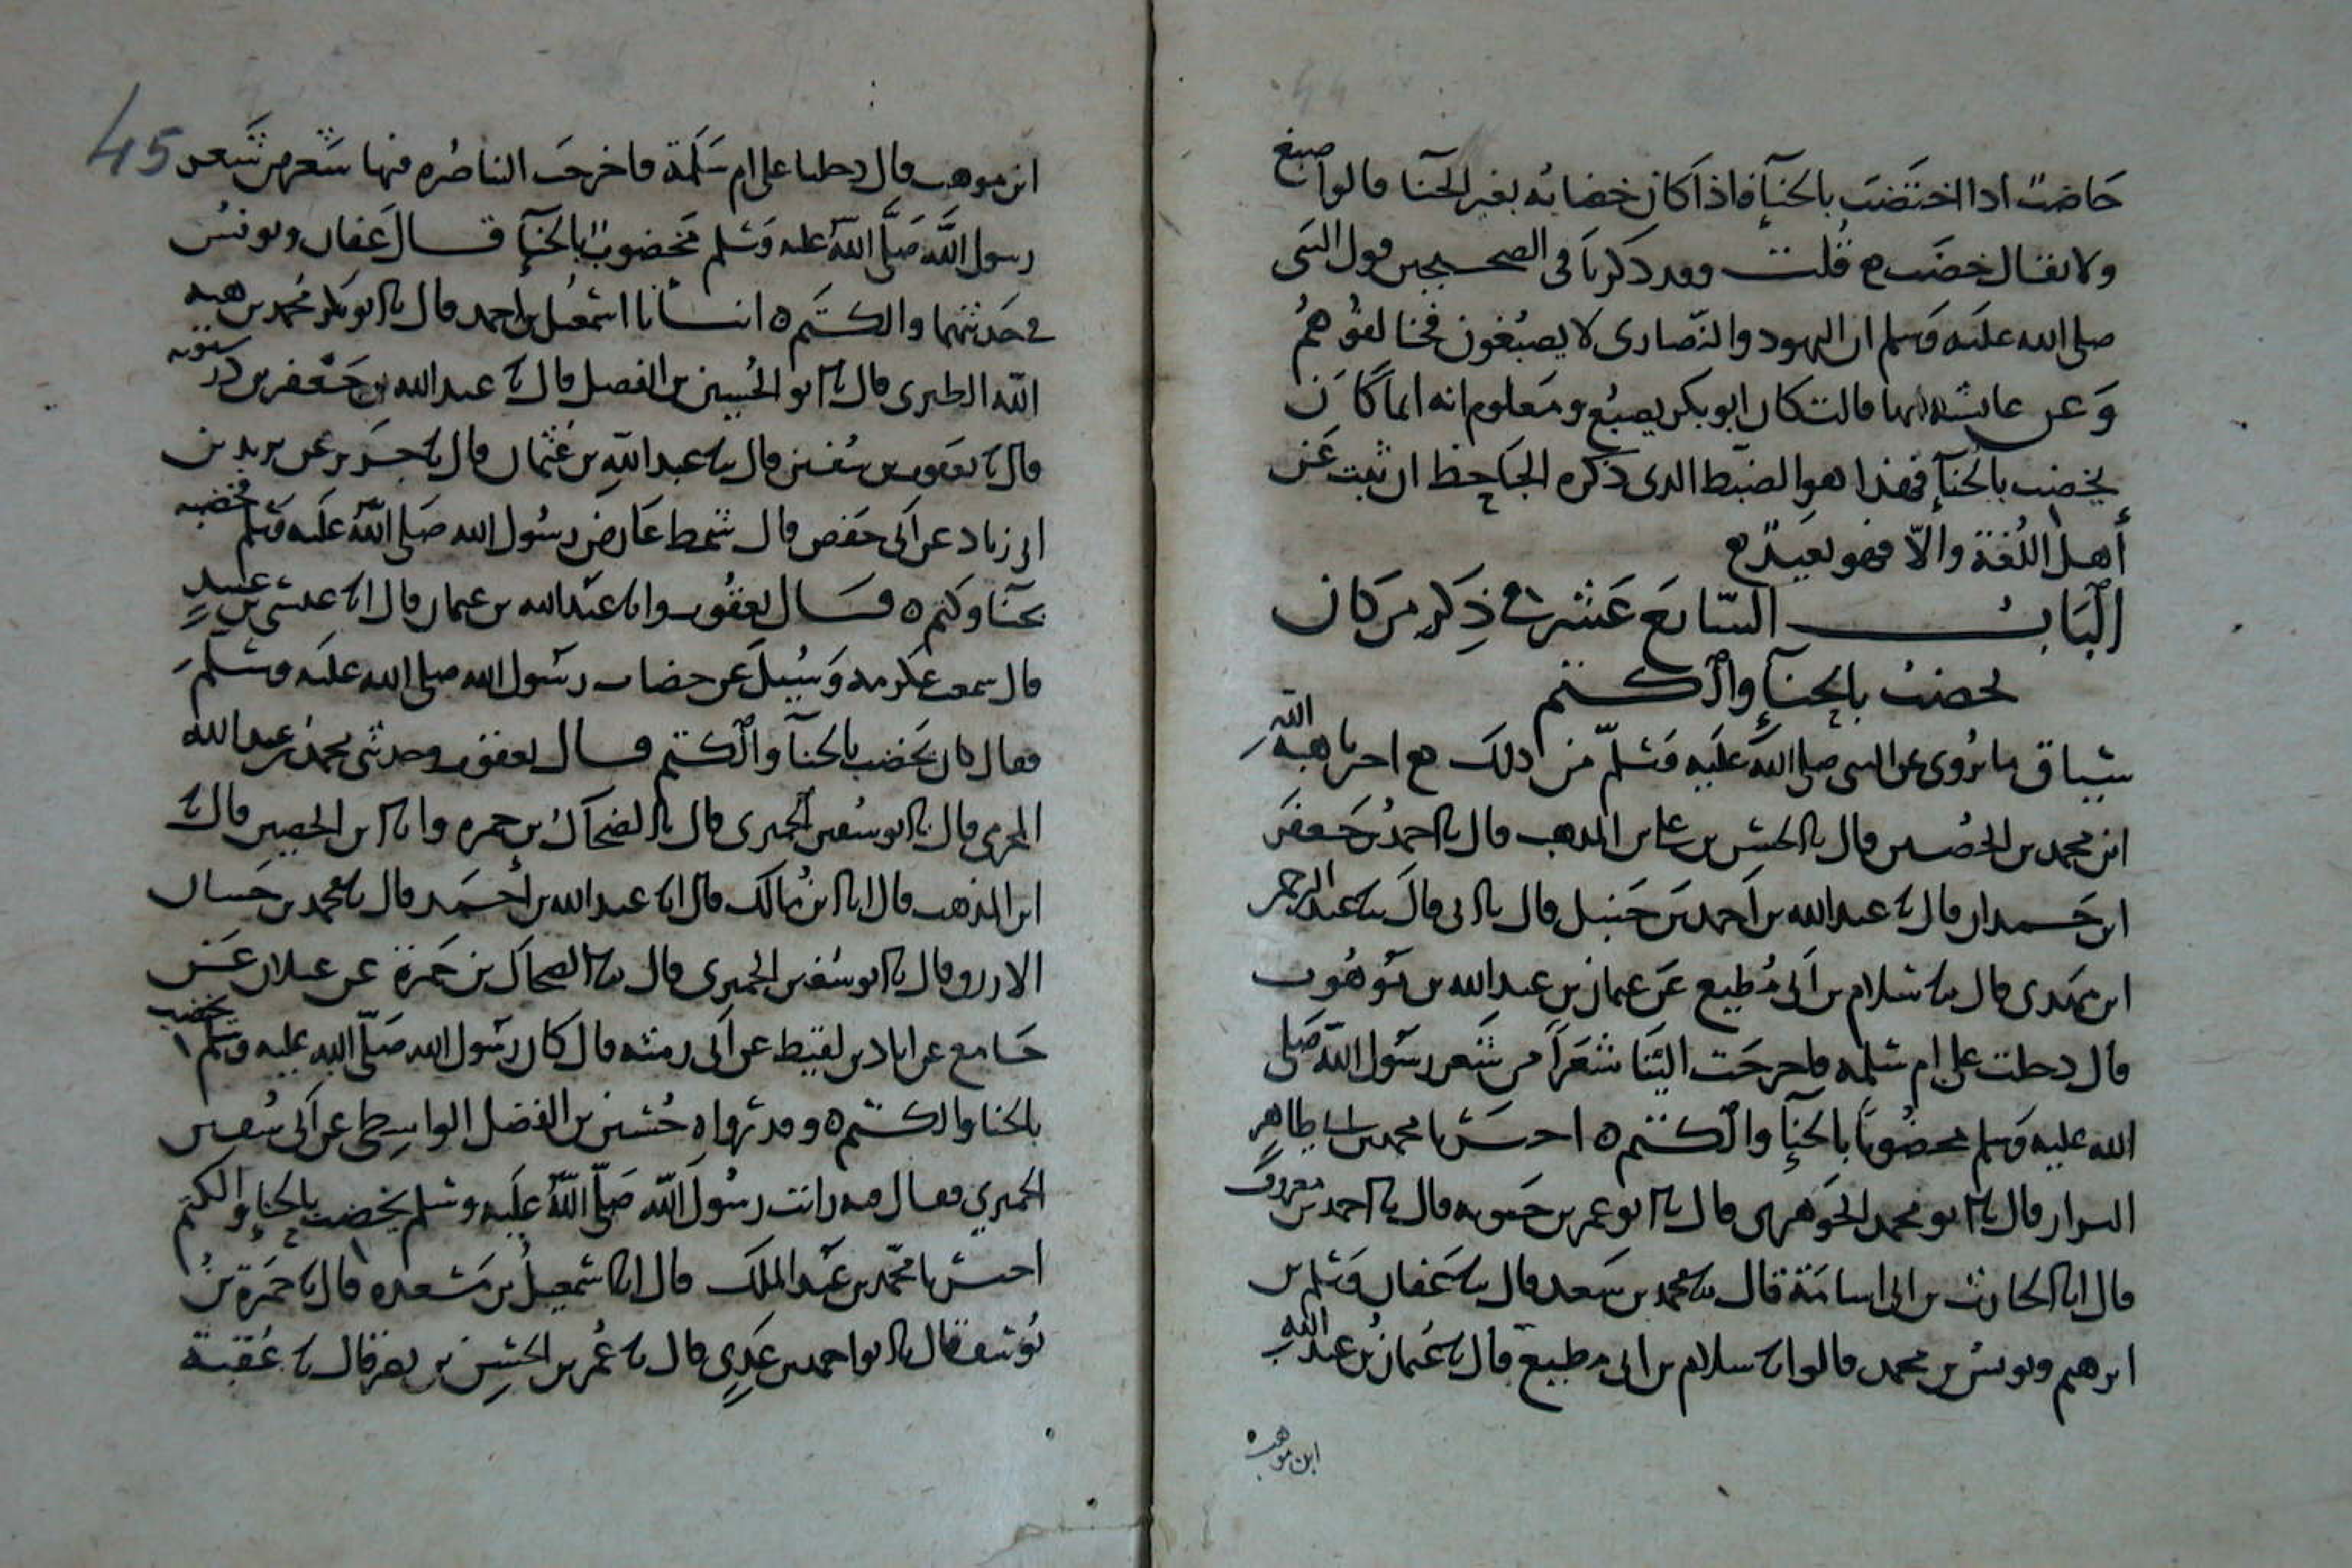 خاضب اذا اختضب بالحنآ فاذا كان خضابه بغير الحنا قالوا صبغ
ولا يقال خضب قلت وقد ذكرنا فى الصحيحين قول النبى
صلى الله عليه وسلم ان اليهود والنصارى لا يصبغون فخالفوهم
وعن عايشه انها قالت كان ابو بكر يصبغ ومعلوم انه انما كان
يخضب بالحنآ فهذا هو الضبط الذى ذكره الجاحظ ان ثبت عن
أهل اللغة والا فهو بعيد
الباب السابع عشر فى ذكر من كان
يخضب بالحنآ والكتم
سياق ما يروى عن النبى صلى الله عليه وسلم من ذلك اخبرنا هبة الله
ابن محمد بن الحصين قال انا الحسن بن على بن المذهب قال انا احمد بن جعفر
ابن حمدان قال نا عبد الله بن احمد بن حنبل قال نا ابى قال نا عبد الرحمن
ابن مهدى قال نا سلام بن ابى مطيع عن عثمان بن عبد الله بن موهوب
قال دخلت على ام سلمه فاخرجت الينا شعرا من شعر رسول الله صلى
الله عليه وسلم مخضوبا بالحنآ والكتم ه اخبرنا محمد بن ابى طاهر
البزاز قال انا ابو محمد الجوهرى قال انا ابو عمر بن حيويه قال انا احمد بن معروف
قال انا الحارث بن ابى اسامة قال نا محمد بن سعد قال نا عفان ومسلم بن
ابرهيم ويونس بن محمد قالوا نا سلام بن ابى مطيع قال نا عثمان بن عبد الله
ابن موهب
45
ابن موهب قال دخلنا على ام سلمة فاخرجت الينا صره فيها شعر من شعر
رسول الله صلى الله عليه وسلم مخضوب بالحنآ قال عفان ويونس
فى حديثهما والكتم ه انبأنا اسمعيل بن احمد قال انا ابو بكر محمد بن هبة
الله الطبرى قال انا ابو الحسين بن الفضل قال نا عبد الله بن جعفر بن درستويه
قال نا يعقوب بن سفين قال نا عبد الله بن عثمان قال نا جرير عن يزيد بن
ابى زياد عن ابى جعفر قال شمط عارض رسول الله صلى الله عليه وسلم فخضبه
بحنآ وكتم ه قال يعقوب وانا عبد الله بن عثمان قال انا عيسى بن عبيد
قال سمعت عكرمه وسئل عن خضاب رسول الله صلى الله عليه وسلم
فقال كان يخضب بالحنآ والكتم قال يعقوب وحدثنى محمد بن عبد الله
المخرمى قال نا ابو سفين الحميرى قال نا الضحاك بن حمره وانا ابن الحصين قال انا
ابن المذهب قال انا ابن مالك قال نا عبد الله بن احمد قال نا محمد بن حسان
الازرق قال نا ابو سفين الحميرى قال نا الضحاك بن حمرة عن غيلان عن
جامع عن اياد بن لقيط عن ابى رمثه قال كان رسول الله صلى الله عليه وسلم يخضب
بالحنا والكتم ه وقد رواه حسين بن الفضل الواسطى عن ابى سفين
الحميرى فقال فيه رايت رسول الله صلى الله عليه وسلم يخضب بالحنا والكتم
اخبرنا محمد بن عبد الملك قال انا اسمعيل بن مسعده قال نا حمزة بن
يوسف قال انا ابو احمد بن عدى قال نا عمر بن الحسن بن نصر قال نا عقبة